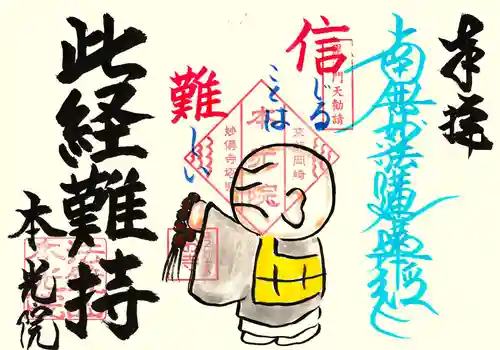 奉拝
南無妙法蓮華経
信じる
ことは
難しい
京都岡崎
本光院
妙傳寺塔頭
此経難持
本光院